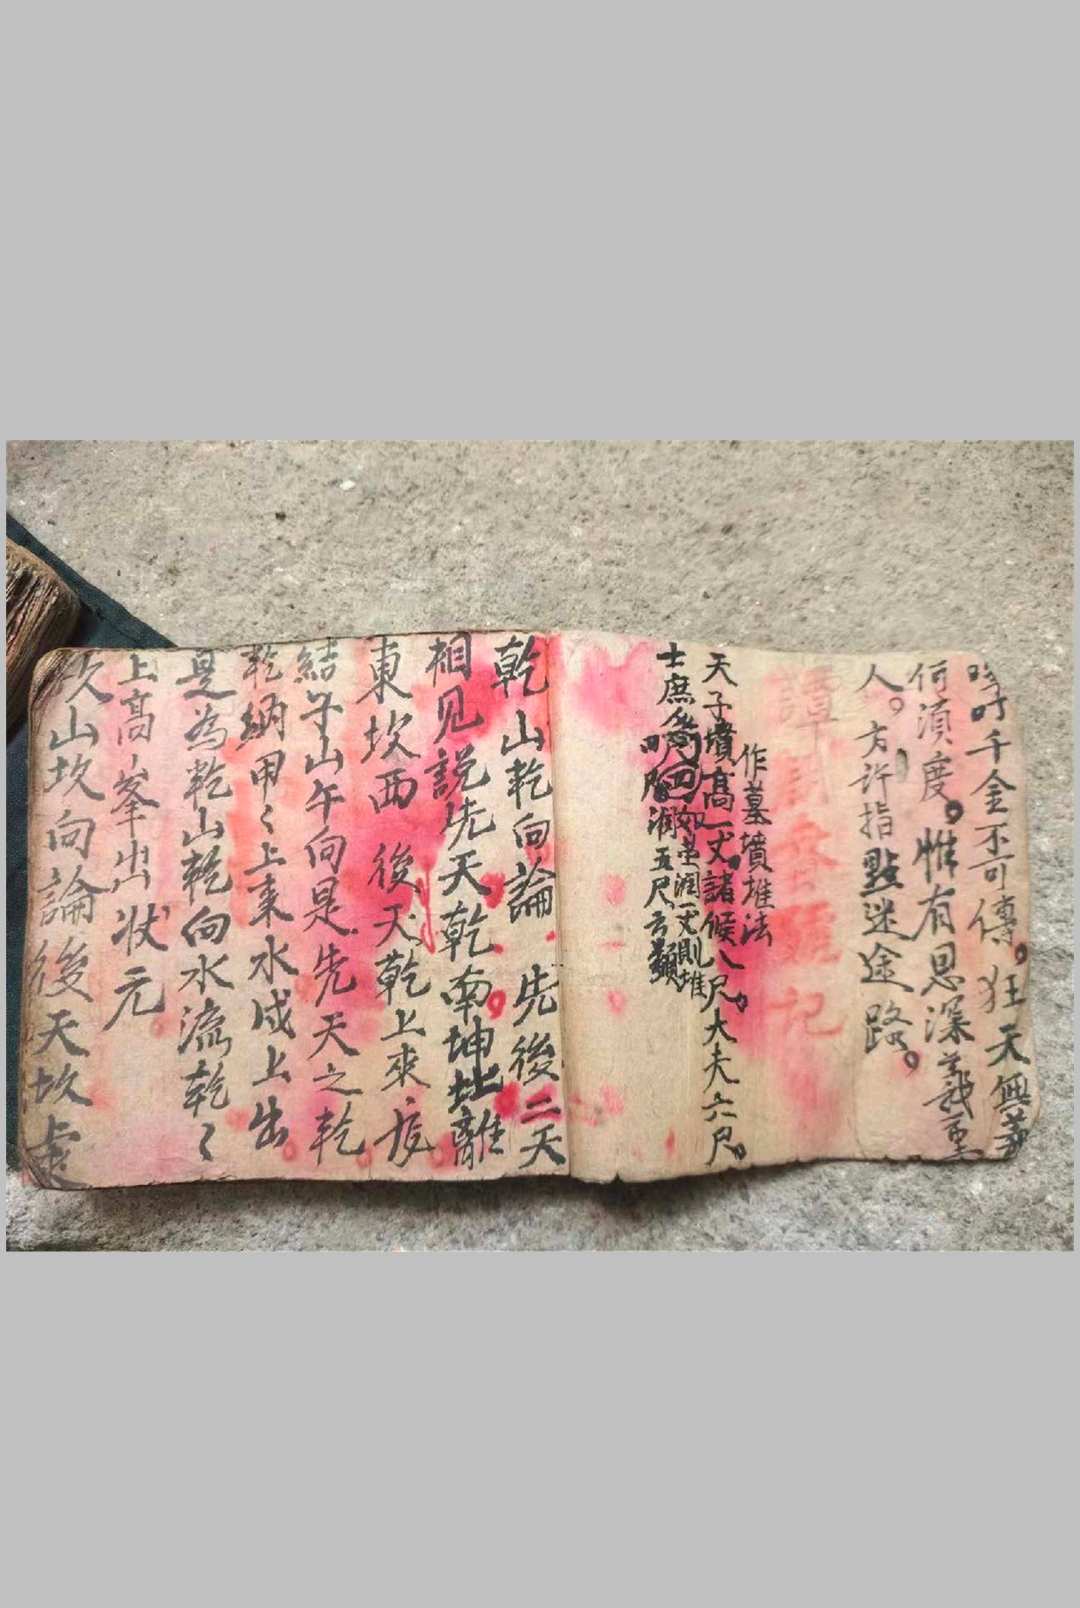 千金不可傳。狂天無
何須度。惟有恩深義重
人。方許指點迷途路。
記
作墓墳堆法
天子墳高一丈。諸候八尺。大夫六尺。
士庶
五尺云
乾山乾向論 先後二天
相见説先天乾南坤北離
東坎西 後天乾上來度
結子山午向是先天之乾
乾納甲〻上来水成上出
是為乾山乾向水流乾〻
上高峯出状元
坎山坎向論後天坎